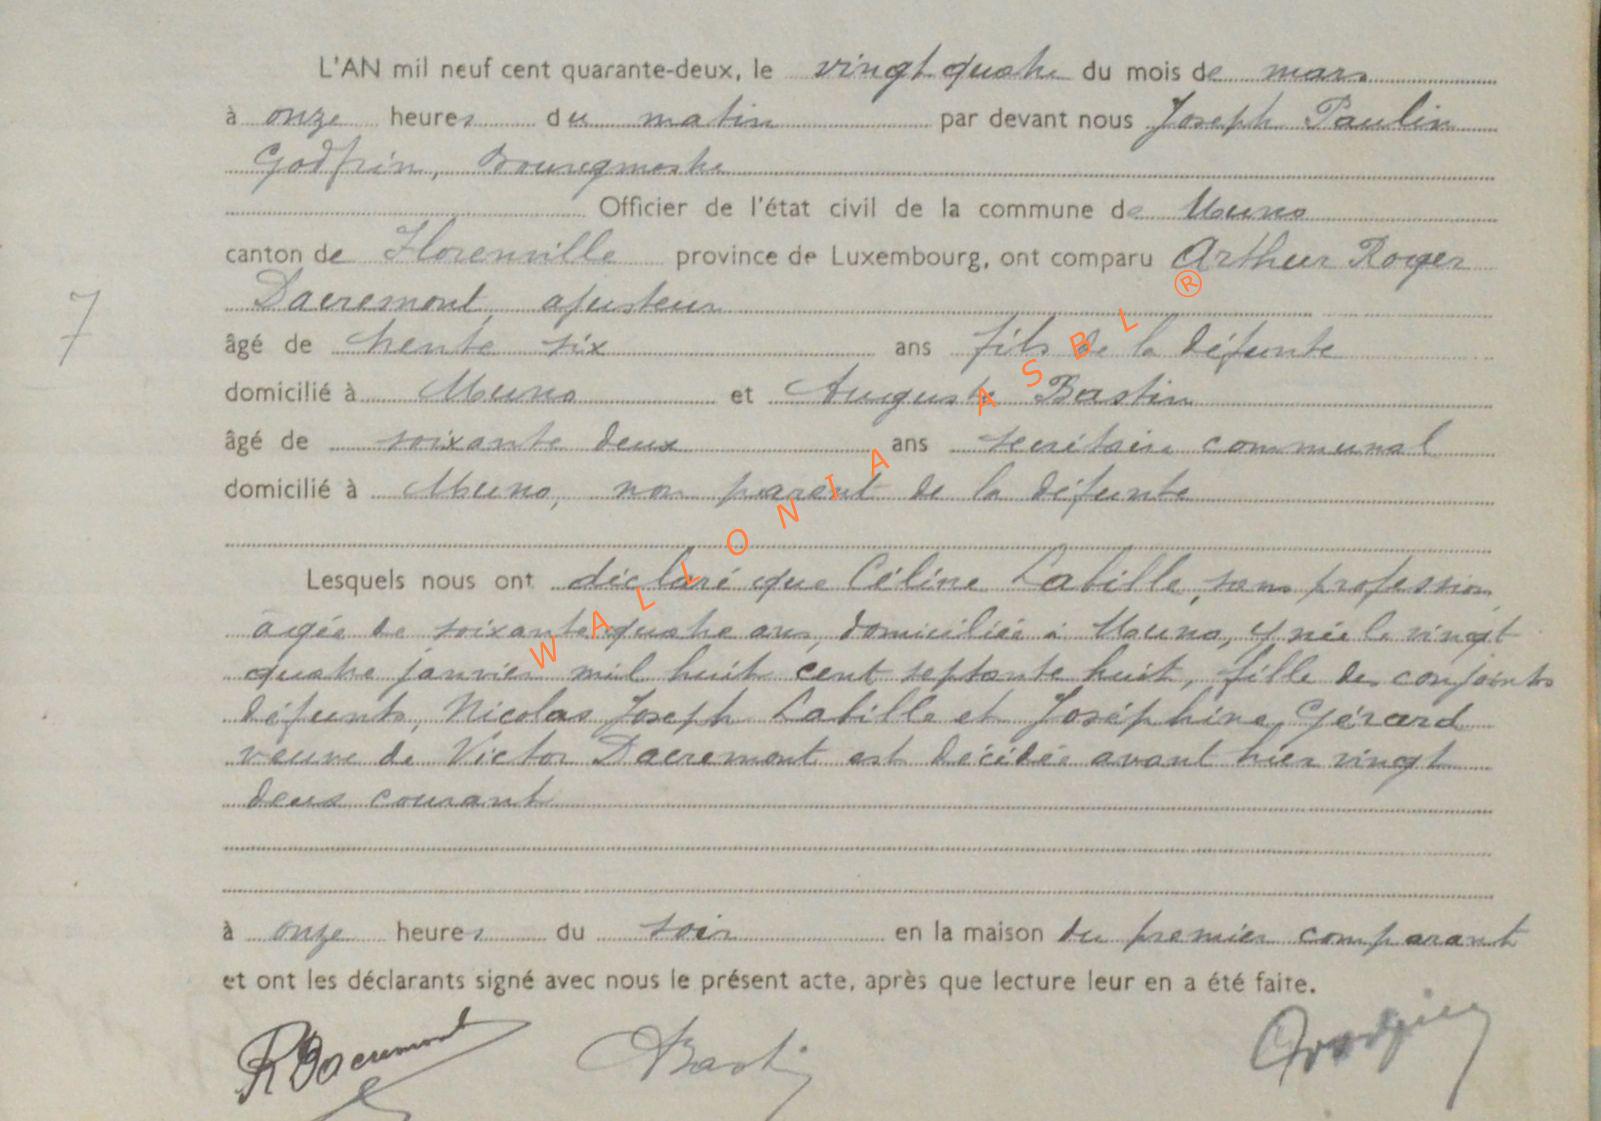 L'AN mil neuf cent quarante-deux, le vingt quatre du mois de mars
à onze heures du matin par devant nous Joseph Paulin
Godfrin, Bourgmestre
Officier de l'état civil de la commune de Muno
canton de Florenville province de Luxembourg, ont comparu Arthur Roger
Dacremont, ajusteur
7
âgé de trente six ans fils de la défunte
domicilié à Muno et Auguste Bastin
âgé de soixante deux ans secrétaire communal
domicilié à Muno, non parent de la défunte
Lesquels nous ont déclaré que Céline Labille, sans profession,
agée de soixante quatre ans, domiciliée à Muno, y née le vingt
quatre janvier mil huit cent septante huit, fille des conjoints
défunts, Nicolas Joseph Labille et Joséphine Gérard
veuve de Victor Dacremont est décédée avant hier vingt
deux courant
à onze heures du soir en la maison du premier comparant
et ont les déclarants signé avec nous le présent acte, après que lecture leur en a été faite.
RDacremont ABastin
WALLONIA ASBL ®